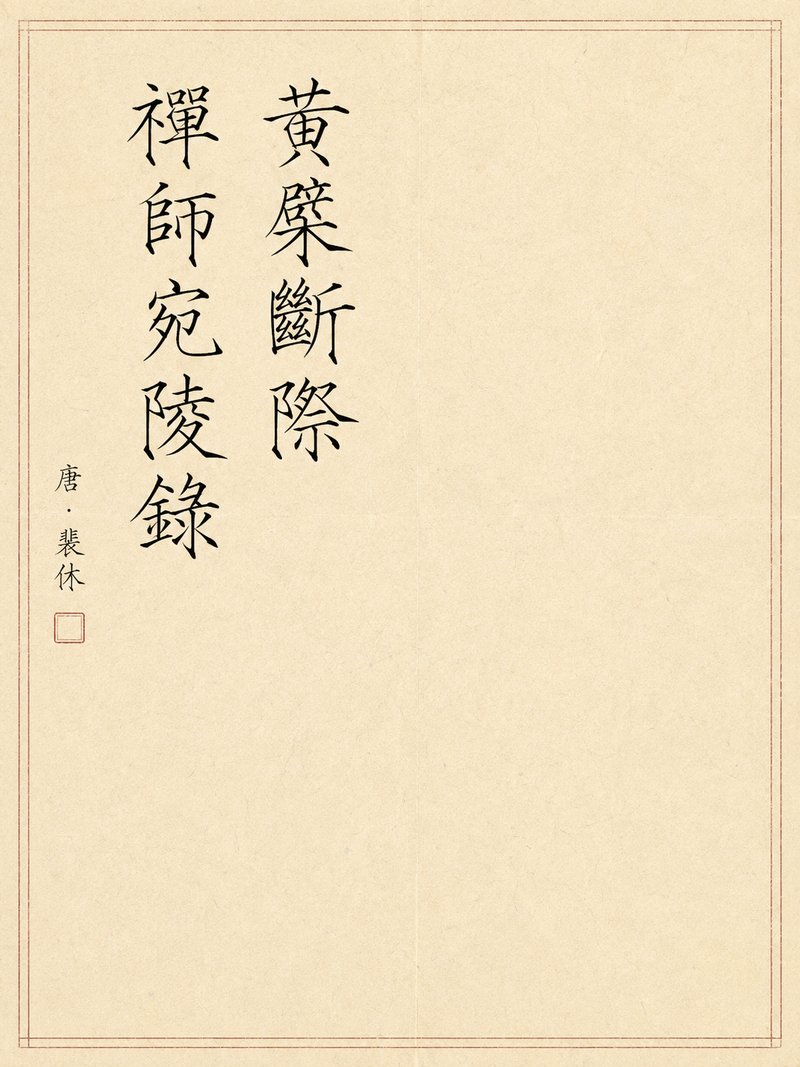 黃檗斷際
禪師宛陵錄
唐·裴休